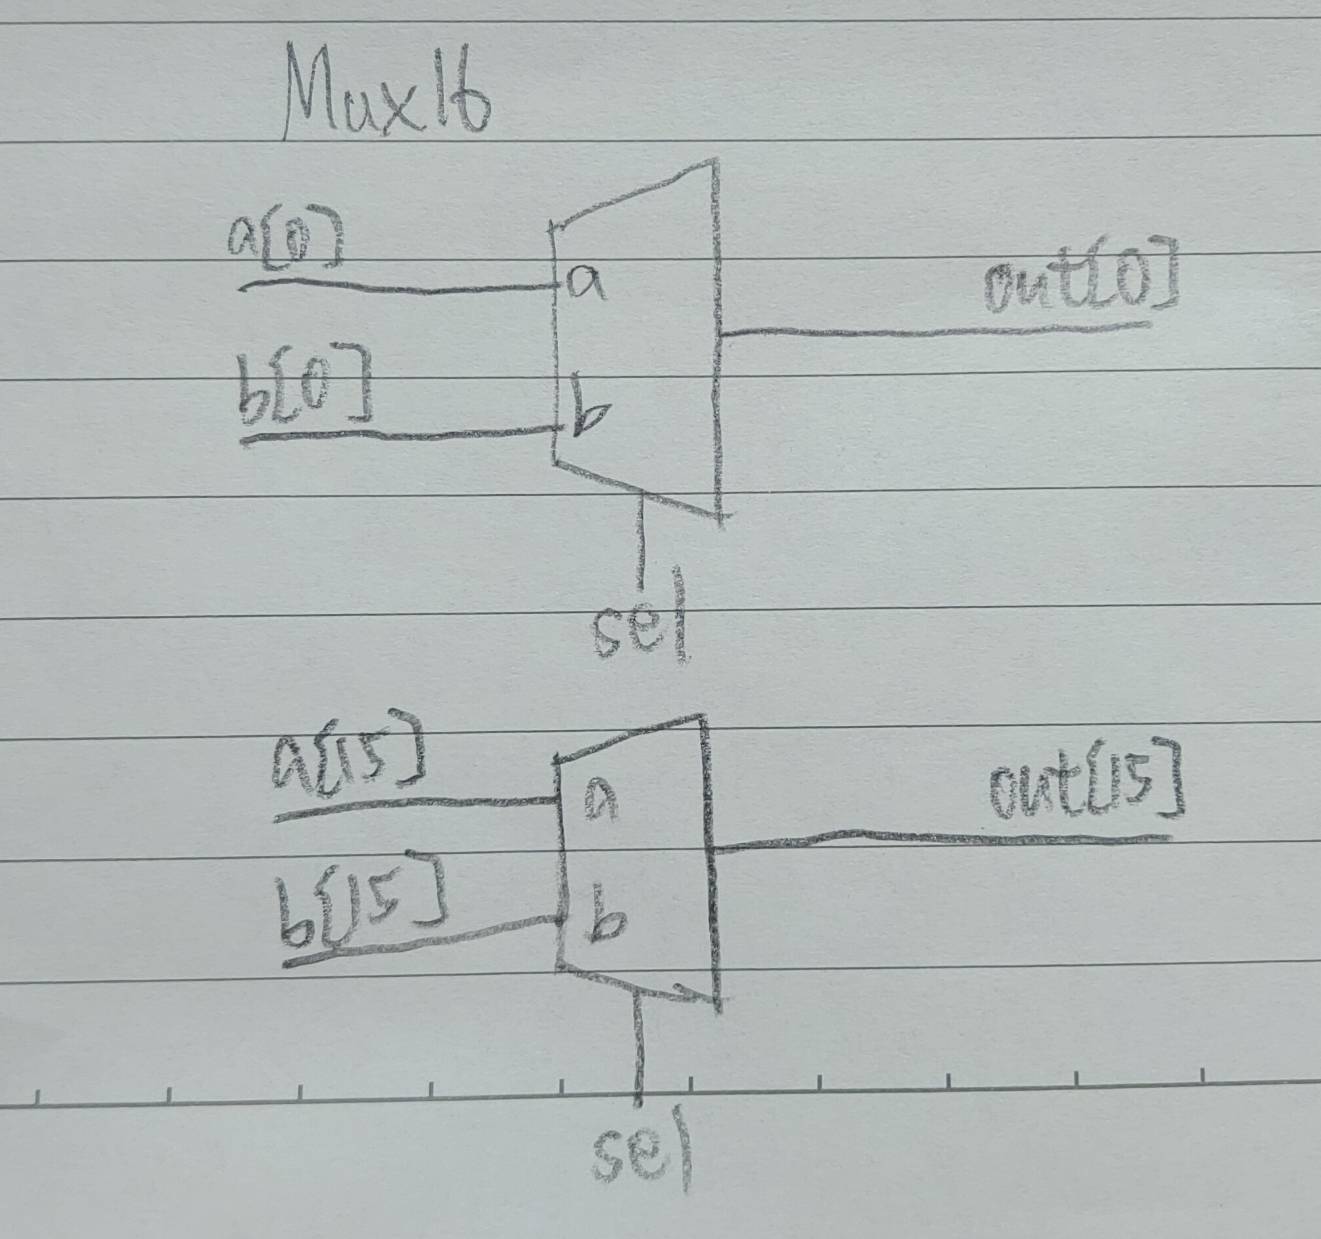 Mux16
a[0]
a
out[0]
b[0]
b
sel
a[15]
a
out[15]
b[15]
b
sel